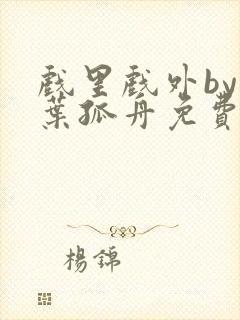 戲里戲外by
葉孤舟免費
楊錦